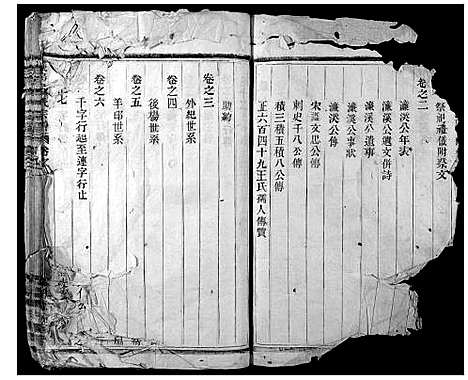 祭祀禮儀附祭文
卷之二
濂溪公年表
濂溪公遺文併詩
濂溪公遺事
濂溪公事狀
濂溪公傳
宋 文忠公傳
刺史千八公傳
積三積五積八公傳
正六百四十九王氏孺人傳贊
助約
卷之三
外紀世系
卷之四
後楊世系
卷之五
羊印世系
卷之六
千字行起至連字行止